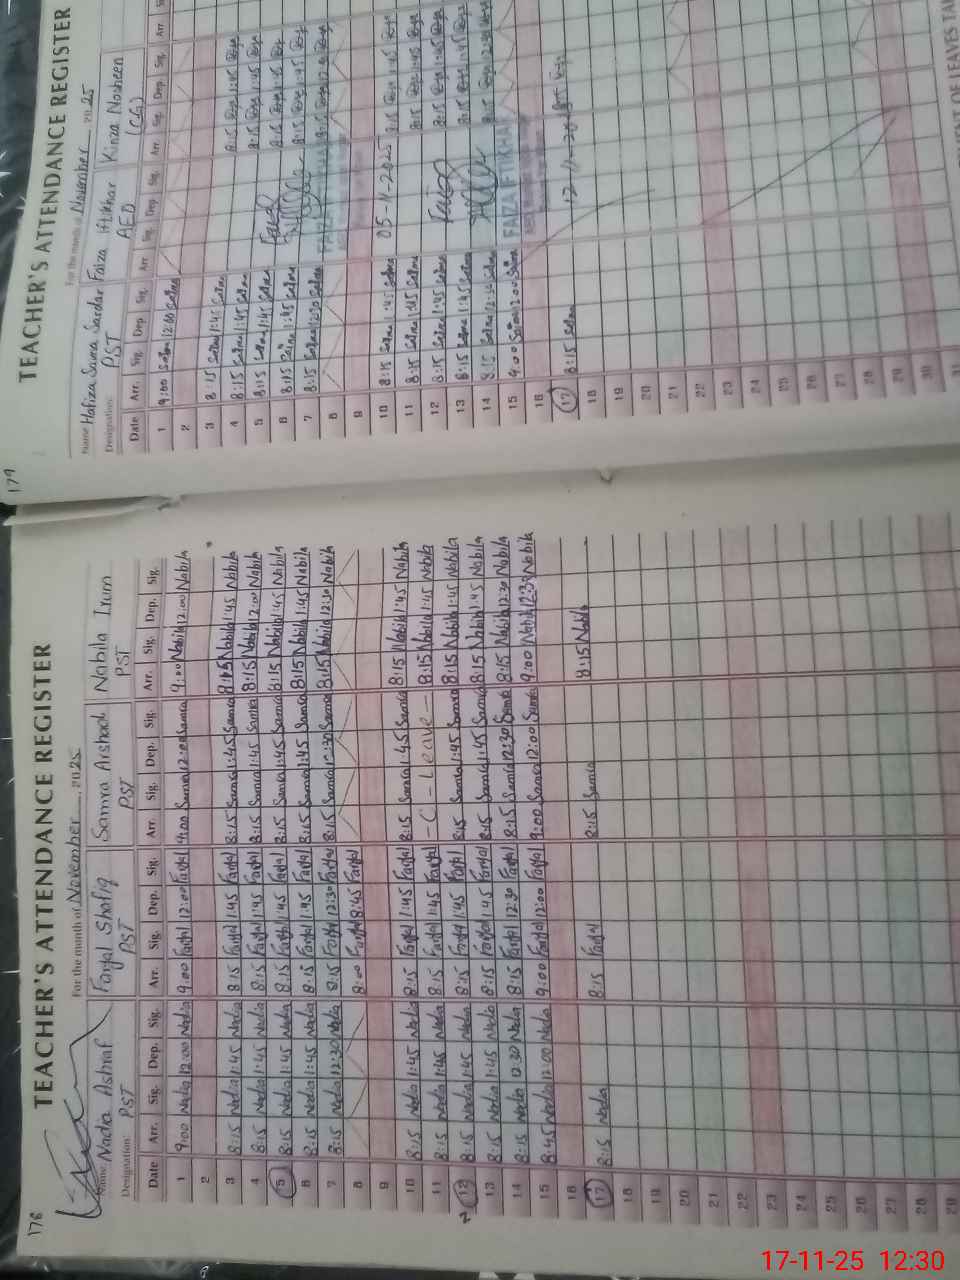 178
TEACHER'S ATTENDANCE REGISTER
For the month of November, 2025
Name: Nadia Ashraf Faryal Shafiq Samra Arshad Nabila Irum
Designation: PST PST PST PST
Date Arr. Sig. Dep. Sig. Arr. Sig. Dep. Sig. Arr. Sig. Dep. Sig. Arr. Sig. Dep. Sig.
1 9:00 Nadia 12:00 Nadia 9:00 Faryal 12:00 Faryal 9:00 Samra 12:00 Samra 9:00 Nabila 12:00 Nabila
2
3 8:15 Nadia 1:45 Nadia 8:15 Faryal 1:45 Faryal 8:15 Samra 1:45 Samra 8:15 Nabila 1:45 Nabila
4 8:15 Nadia 1:45 Nadia 8:15 Faryal 1:45 Faryal 8:15 Samra 1:45 Samra 8:15 Nabila 12:00 Nabila
5 8:15 Nadia 1:45 Nadia 8:15 Faryal 1:45 Faryal 8:15 Samra 1:45 Samra 8:15 Nabila 1:45 Nabila
6 8:15 Nadia 1:45 Nadia 8:15 Faryal 1:45 Faryal 8:15 Samra 1:45 Samra 8:15 Nabila 1:45 Nabila
7 8:15 Nadia 12:30 Nadia 8:15 Faryal 12:30 Faryal 8:15 Samra 12:30 Samra 8:15 Nabila 12:30 Nabila
8 8:00 Faryal 8:45 Faryal
9
10 8:15 Nadia 1:45 Nadia 8:15 Faryal 1:45 Faryal 8:15 Samra 1:45 Samra 8:15 Nabila 1:45 Nabila
11 8:15 Nadia 1:45 Nadia 8:15 Faryal 1:45 Faryal - C - Leave - 8:15 Nabila 1:45 Nabila
12 8:15 Nadia 1:45 Nadia 8:15 Faryal 1:45 Faryal 8:15 Samra 1:45 Samra 8:15 Nabila 1:45 Nabila
13 8:15 Nadia 1:45 Nadia 8:15 Faryal 1:45 Faryal 8:15 Samra 1:45 Samra 8:15 Nabila 1:45 Nabila
14 8:15 Nadia 12:30 Nadia 8:15 Faryal 12:30 Faryal 8:15 Samra 12:30 Samra 8:15 Nabila 12:30 Nabila
15 8:45 Nadia 12:00 Nadia 9:00 Faryal 12:00 Faryal 9:00 Samra 12:00 Samra 9:00 Nabila 12:30 Nabila
16
17 8:15 Nadia 8:15 Faryal 8:15 Samra 8:15 Nabila
18
19
20
21
22
23
24
25
26
27
28
29
179
TEACHER'S ATTENDANCE REGISTER
For the month of November, 2025
Name Hafiza Saima Sardar Faiza Iftikhar Kinza Nosheen
Designation: PST AEO (CG)
Date Arr. Sig. Dep Sig. Arr Sig. Dep Sig. Arr. Sig. Dep. Sig. Arr.
1 9:00 Saima 12:00 Saima
2
3 8:15 Saima 1:45 Saima 8:15 1:45
4 8:15 Saima 1:45 Saima 8:15 1:45
5 8:15 Saima 1:45 Saima 8:15 1:45
6 8:15 Saima 1:45 Saima 8:15 1:45
7 8:15 Saima 12:30 Saima FAIZA IFTIKHAR 8:15 12:30
8
9
10 8:15 Saima 1:45 Saima 05-11-2025 8:15 1:45
11 8:15 Saima 1:45 Saima 8:15 1:45
12 8:15 Saima 1:45 Saima 8:15 1:45
13 8:15 Saima 1:45 Saima 8:15 1:45
14 8:15 Saima 12:30 Saima 8:15 12:30
15 9:00 Saima 12:00 Saima FAIZA IFTIKHAR
16
17 8:15 Saima 8:15
18
19
20
21
22
23
24
25
26
27
28
29
30
31
17-11-25 12:30